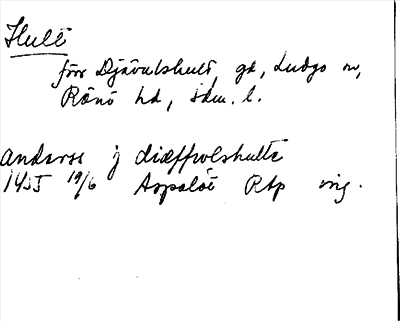 Hult
för Djävulshult, gd, Ludgo sn,
Rönö hd, Sdm. l.
Anderss j diæffwlshulte
1455 19/6 Aspalöt RAp orig.